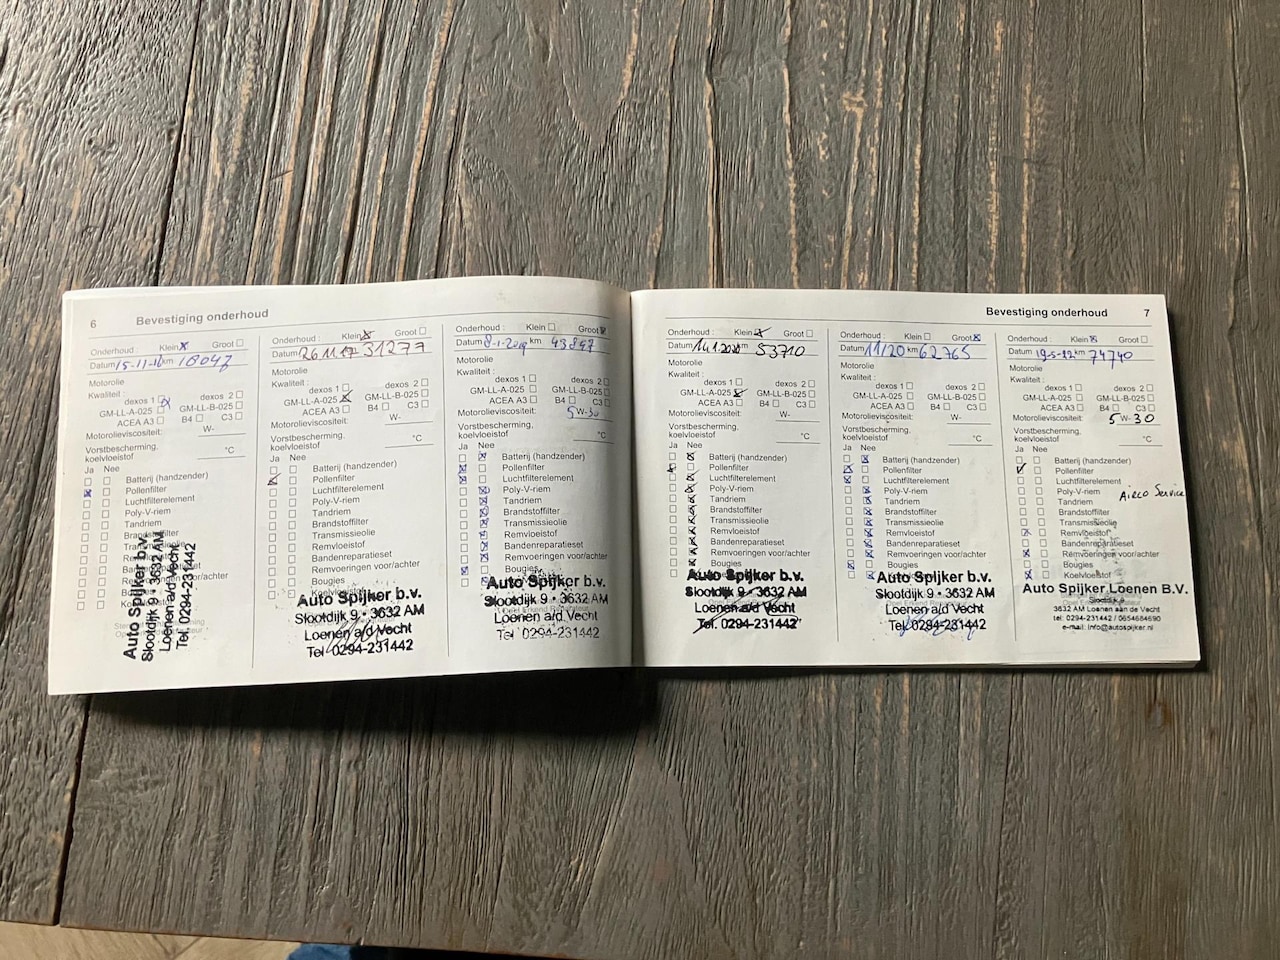 6 Bevestiging onderhoud
Onderhoud : Klein Groot
Datum 15-11-16 km 18047
Motorolie
Kwaliteit :
dexos 1 dexos 2
GM-LL-A-025 GM-LL-B-025
ACEA A3 B4 C3
Motorolieviscositeit: W-
Vorstbescherming,
koelvloeistof °C
Ja Nee
Batterij (handzender)
Pollenfilter
Luchtfilterelement
Poly-V-riem
Tandriem
Brandstoffilter
Auto Spijker b.v.
Slootdijk 9 • 3632 AM
Loenen a/d Vecht
Tel. 0294-231442
Onderhoud : Klein Groot
Datum 26 11 17 31277
Motorolie
Kwaliteit :
dexos 1 dexos 2
GM-LL-A-025 GM-LL-B-025
ACEA A3 B4 C3
Motorolieviscositeit: W-
Vorstbescherming,
koelvloeistof °C
Ja Nee
Batterij (handzender)
Pollenfilter
Luchtfilterelement
Poly-V-riem
Tandriem
Brandstoffilter
Transmissieolie
Remvloeistof
Bandenreparatieset
Remvoeringen voor/achter
Bougies
Koelvloeistof
Auto Spijker b.v.
Slootdijk 9 • 3632 AM
Loenen a/d Vecht
Tel. 0294-231442
Onderhoud : Klein Groot
Datum 8-1-2019 km 43897
Motorolie
Kwaliteit :
dexos 1 dexos 2
GM-LL-A-025 GM-LL-B-025
ACEA A3 B4 C3
Motorolieviscositeit: 5 W-30
Vorstbescherming,
koelvloeistof °C
Ja Nee
Batterij (handzender)
Pollenfilter
Luchtfilterelement
Poly-V-riem
Tandriem
Brandstoffilter
Transmissieolie
Remvloeistof
Bandenreparatieset
Remvoeringen voor/achter
Bougies
Auto Spijker b.v.
Slootdijk 9 • 3632 AM
Loenen a/d Vecht
Tel. 0294-231442
Bevestiging onderhoud 7
Onderhoud : Klein Groot
Datum 14.1.2020 53710
Motorolie
Kwaliteit :
dexos 1 dexos 2
GM-LL-A-025 GM-LL-B-025
ACEA A3 B4 C3
Motorolieviscositeit: W-
Vorstbescherming,
koelvloeistof °C
Ja Nee
Batterij (handzender)
Pollenfilter
Luchtfilterelement
Poly-V-riem
Tandriem
Brandstoffilter
Transmissieolie
Remvloeistof
Bandenreparatieset
Remvoeringen voor/achter
Bougies
Auto Spijker b.v.
Slootdijk 9 • 3632 AM
Loenen a/d Vecht
Tel. 0294-231442
Onderhoud : Klein Groot
Datum 11/20 km 62765
Motorolie
Kwaliteit :
dexos 1 dexos 2
GM-LL-A-025 GM-LL-B-025
ACEA A3 B4 C3
Motorolieviscositeit: W-
Vorstbescherming,
koelvloeistof °C
Ja Nee
Batterij (handzender)
Pollenfilter
Luchtfilterelement
Poly-V-riem
Tandriem
Brandstoffilter
Transmissieolie
Remvloeistof
Bandenreparatieset
Remvoeringen voor/achter
Bougies
Auto Spijker b.v.
Slootdijk 9 • 3632 AM
Loenen a/d Vecht
Tel. 0294-231442
Onderhoud : Klein Groot
Datum km 74740
Motorolie
Kwaliteit :
dexos 1 dexos 2
GM-LL-A-025 GM-LL-B-025
ACEA A3 B4 C3
Motorolieviscositeit: 5 W-30
Vorstbescherming,
koelvloeistof °C
Ja Nee
Batterij (handzender)
Pollenfilter
Luchtfilterelement
Poly-V-riem Airco Service
Tandriem
Brandstoffilter
Transmissieolie
Remvloeistof
Bandenreparatieset
Remvoeringen voor/achter
Bougies
Koelvloeistof
Auto Spijker Loenen B.V.
Slootdijk 9
3632 AM Loenen aan de Vecht
tel: 0294-231442 / 0654684690
e-mail: info@autospijker.nl